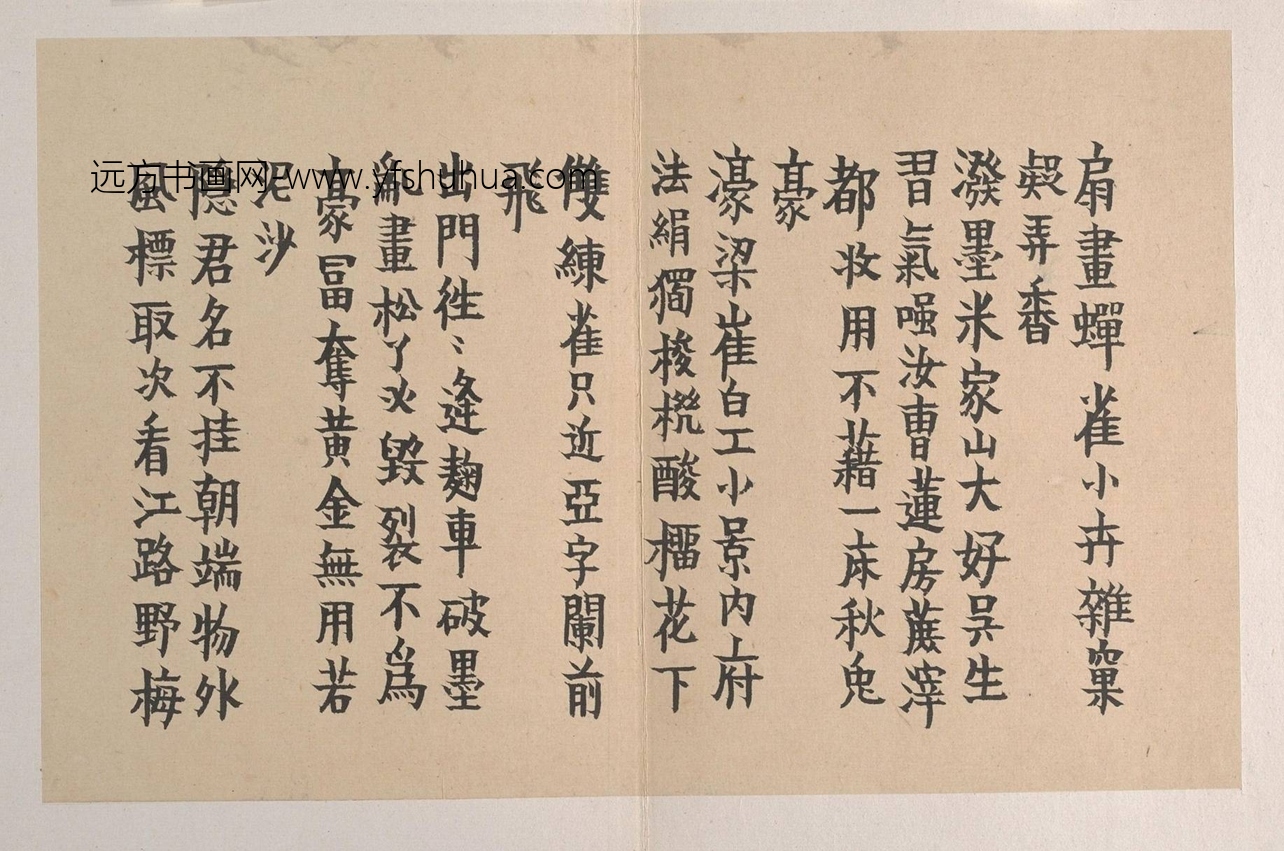 扇畫蟬雀小卉雜窠
弄香
潑墨米家山大好吳生
習氣嗤汝曹蓮房蔗滓
都收用不藉一床秋兔
豪
濠梁崔白工小景內府
法絹獨梭梳酸檑花下
雙練雀只近亞字闌前
飛
出門往〻逢麴車破墨
亂畫松了火毀裂不為
豪冨奪黄金無用若
泥沙
隱君名不挂朝端物外
風標取次看江路野梅
远方书画网-www.yfshuhua.com